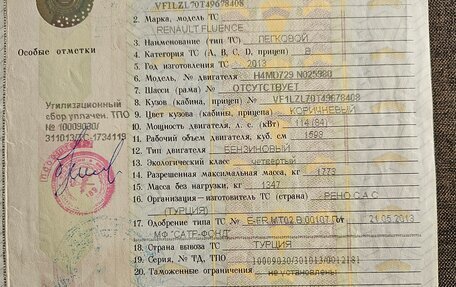 VF1LZL70T49678408
2. Марка, модель ТС RENAULT FLUENCE
3. Наименование (тип ТС) ЛЕГКОВОЙ
Особые отметки
4. Категория ТС (A, B, C, D, прицеп) B
5. Год изготовления ТС 2013
6. Модель, № двигателя H4MD729 N025980
7. Шасси (рама) № ОТСУТСТВУЕТ
8. Кузов (кабина, прицеп) № VF1LZL70T49678408
9. Цвет кузова (кабины, прицепа) КОРИЧНЕВЫЙ
Утилизационный
сбор уплачен. ТПО
№ 10009030/
311013/ТС-1734119
10. Мощность двигателя, л. с. (кВт) 114 (84)
11. Рабочий объем двигателя, куб. см 1598
12. Тип двигателя БЕНЗИНОВЫЙ
13. Экологический класс четвертый
14. Разрешенная максимальная масса, кг 1773
15. Масса без нагрузки, кг 1347
16. Организация—изготовитель ТС (страна) РЕНО С.А.С.
(ТУРЦИЯ)
17. Одобрение типа ТС № E-FR.MT02.B.00107 от 21.05.2013
МФ "САТР-ФОНД"
18. Страна вывоза ТС ТУРЦИЯ
19. Серия, № ТД, ТПО 10009030/301013/0012181
20. Таможенные ограничения не установлены